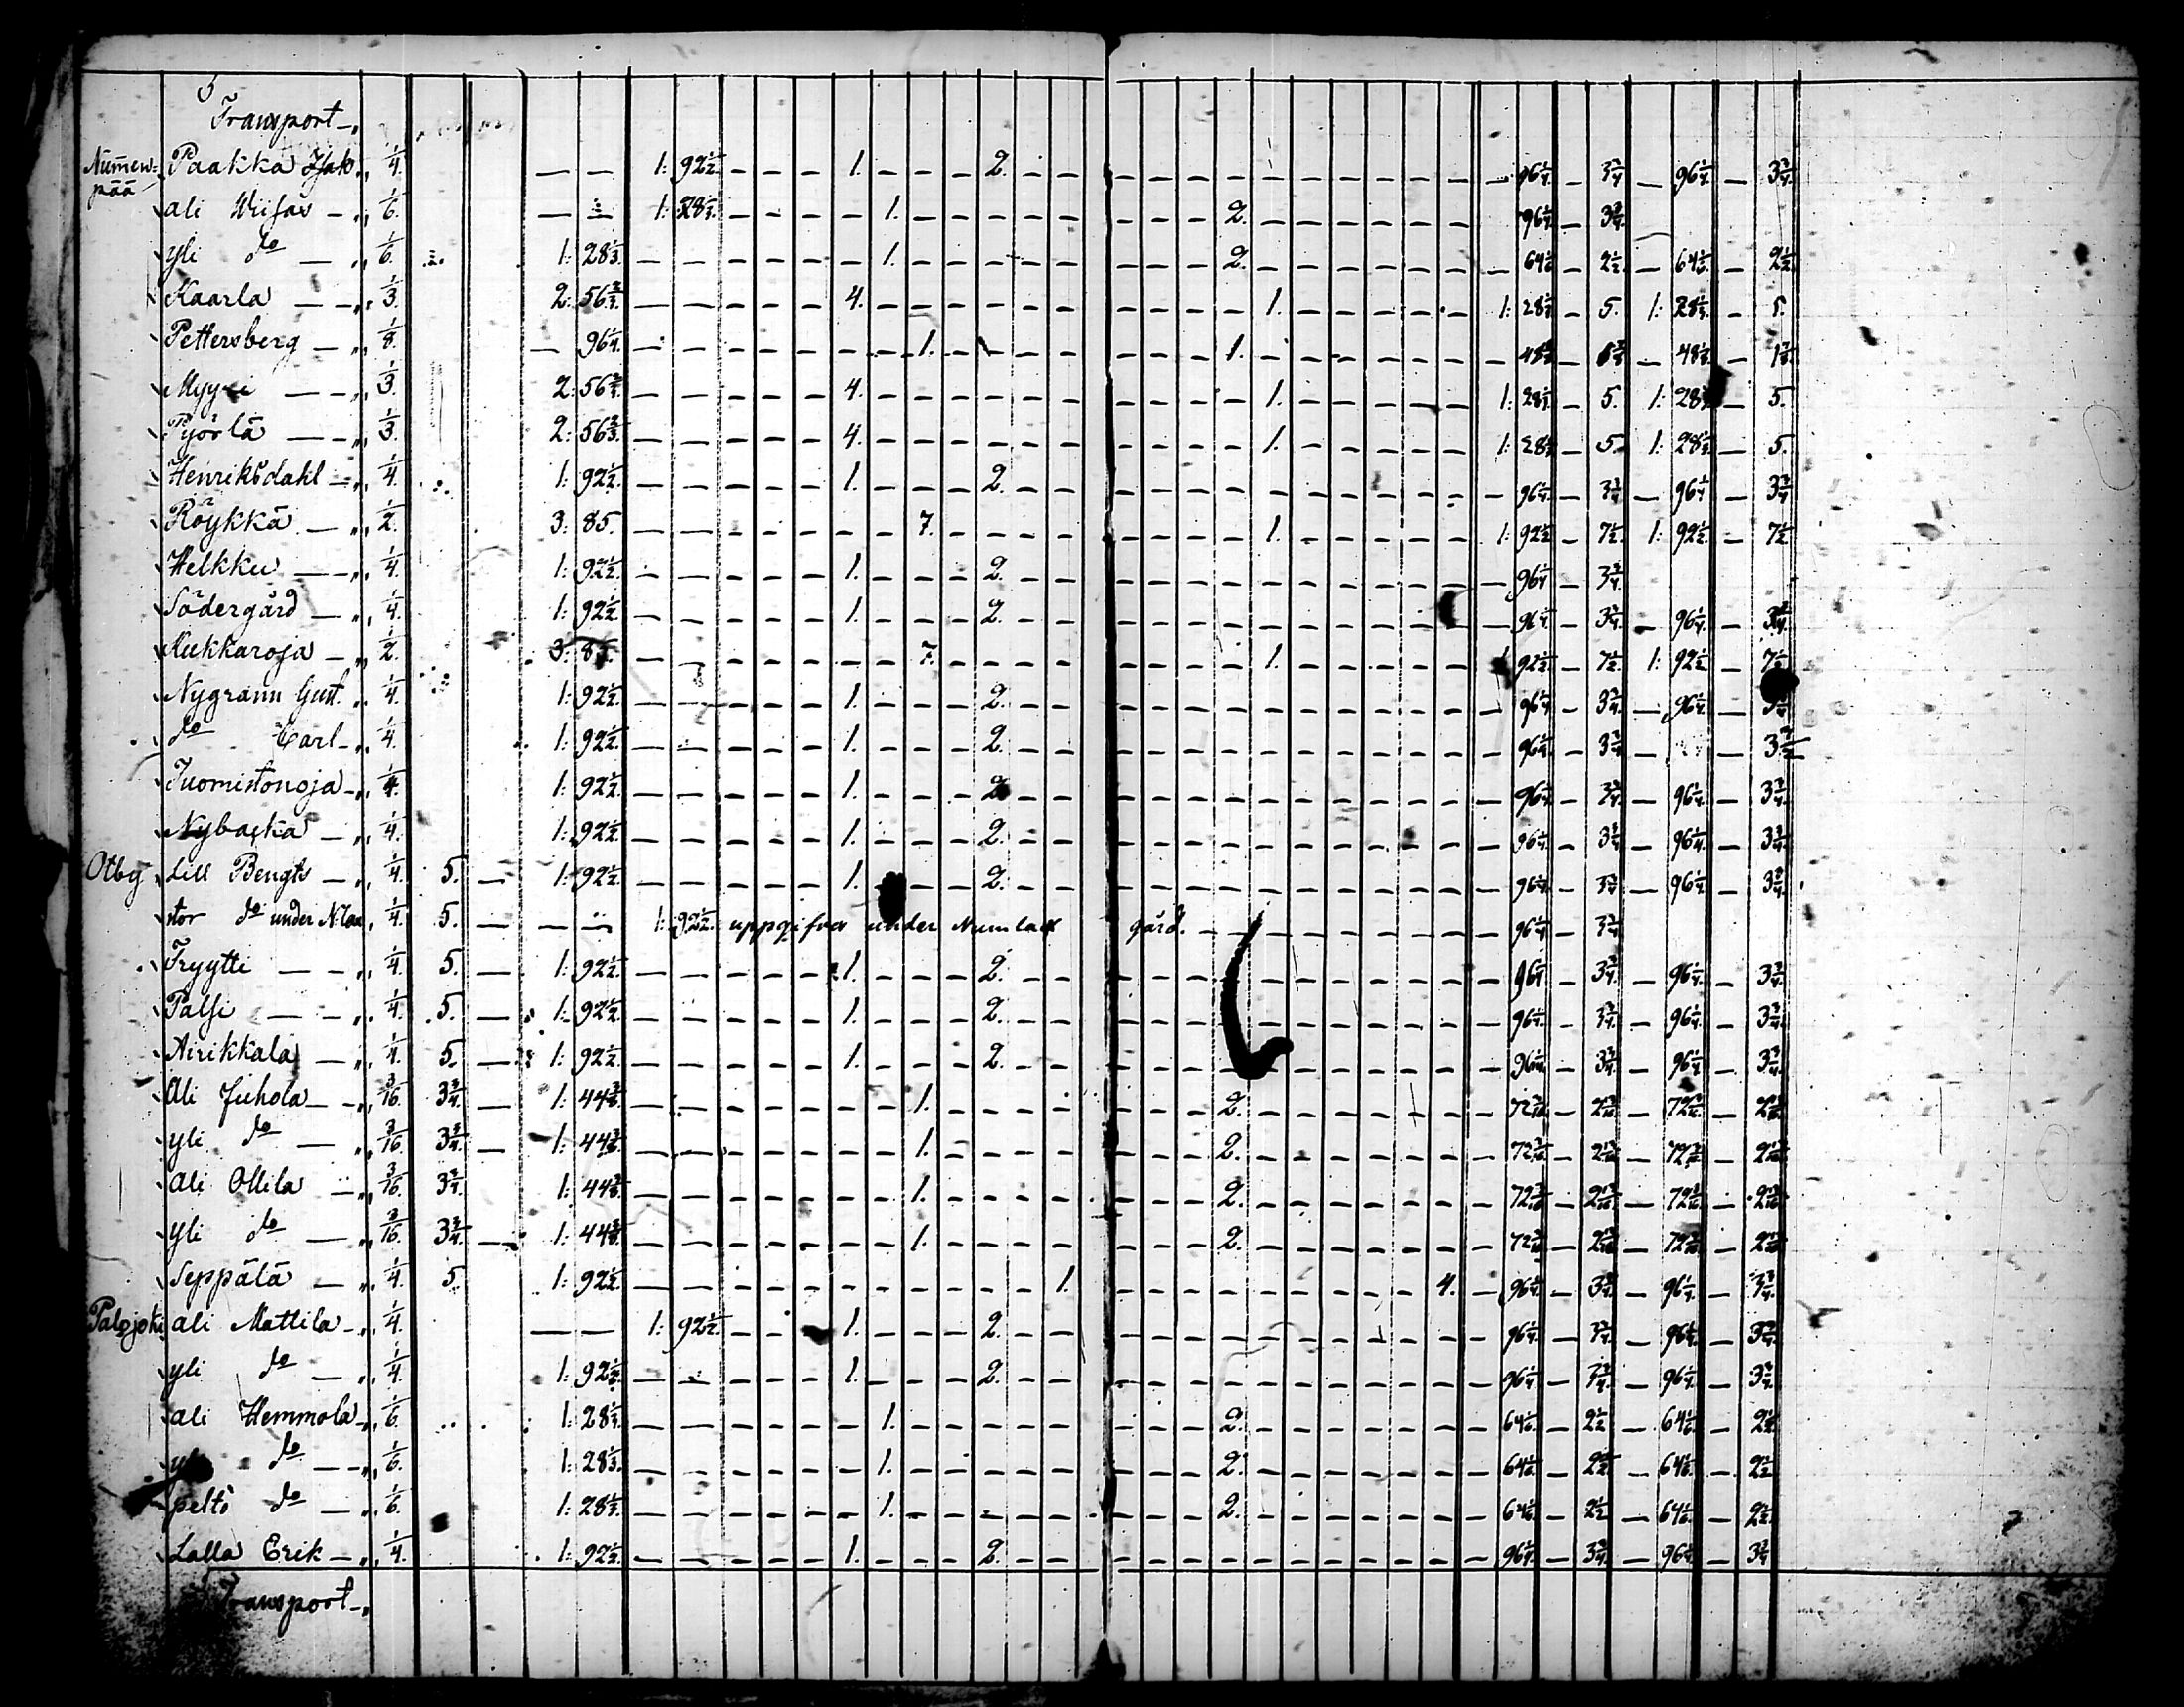 Transport
Numenpää Paakka 1/4. — — 1: 92 1/2. 1. 2. 96 1/4. 3 3/4. 96 1/4. 3 3/4.
ali 1/6. — — 1: 28 1/3. 1. 2. 96 1/4. 3 3/4.
yli do 1/6. 1: 28 1/3. 1. 2. 64 1/6. 2 1/2. 64 1/6. 2 1/2.
Kaarla 1/3. 2: 56 2/3. 4. 1. 1: 28 1/3. 5. 1: 28 1/3. 5.
Pettersberg 1/8. — 96 1/4. 1. 1. 48 1/8. 48 1/8. 1 7/8.
Myyri 1/3. 2: 56 2/3. 4. 1. 1: 28 1/3. 5. 1: 28 5.
Pyörlä 1/3. 2: 56 2/3. 4. 1. 1: 28 1/3. 5. 1: 28 1/3. 5.
Henriksdahl 1/4. 1: 92 1/2. 1. 2. 96 1/4. 3 3/4. 96 1/4. 3 3/4.
Röykkä 1/2. 3: 85. 7. 1. 1: 92 1/2. 7 1/2. 1: 92 1/2. 7 1/2.
Helkku 1/4. 1: 92 1/2. 1. 2. 96 1/4. 3 3/4.
Södergård 1/4. 1: 92 1/2. 1. 2. 96 1/4. 3 3/4. 96 1/4. 3 3/4.
Kukkaroja 1/2. 3: 85. 7. 1. 92 1/2. 7 1/2. 1: 92 1/2. 7 1/2.
Nygrann Gust. 1/4. 1: 92 1/2. 1. 2. 96 1/4. 3 3/4. 96 1/4.
do Carl 1/4. 1: 92 1/2. 1. 2. 96 1/4. 3 3/4. 3 3/4.
Tuomistonoja 1/4. 1: 92 1/2. 1. 2. 96 1/4. 3 3/4. 96 1/4. 3 3/4.
Nybacka 1/4. 1: 92 1/2. 1. 2. 96 1/4. 3 3/4. 96 1/4. 3 3/4.
Otby Lill Bengts 1/4. 5. 1: 92 1/2. 1. 2. 96 1/4. 3 3/4. 96 1/4. 3 3/4.
stor do under 1/4. 5. — — 1: 92 1/2. uppgifven under Numlax gård. 96 1/4. 3 3/4.
Tryytti 1/4. 5. 1: 92 1/2. 1. 2. 96 1/4. 3 3/4. 96 1/4. 3 3/4.
Palsi 1/4. 5. 1: 92 1/2. 1. 2. 96 1/4. 3 3/4. 96 1/4. 3 3/4.
Airikkala 1/4. 5. 1: 92 1/2. 1. 2. 96 1/4. 3 3/4. 96 1/4. 3 3/4.
Ali Juhola 3/16. 3 3/4. 1: 44 3/8. 1. 2. 72 3/16. 2 13/16. 72 3/16. 2 13/16.
yli do 3/16. 3 3/4. 1: 44 3/8. 1. 2. 72 3/16. 2 13/16. 72 3/16. 2 13/16.
Ali Ollila 3/16. 3 3/4. 1: 44 3/8. 1. 2. 72 3/16. 2 13/16. 72 3/16. 2 13/16.
yli do 3/16. 3 3/4. 1: 44 3/8. 1. 2. 72 3/16. 2 13/16. 72 3/16. 2 13/16.
Seppälä 1/4. 5. 1: 92 1/2. 1. 4. 96 1/4. 3 3/4. 96 1/4. 3 3/4.
Palojoki ali Mattila 1/4. — — 1: 92 1/2. 1. 2. 96 1/4. 3 3/4. 96 1/4. 3 3/4.
yli do 1/4. 1: 92 1/2. 1. 2. 96 1/4. 3 3/4. 96 1/4. 3 3/4.
ali Hemmola 1/6. 1: 28 1/3. 1. 2. 64 1/6. 2 1/2. 64 1/6. 2 1/2.
do 1/6. 1: 28 1/3. 1. 2. 64 1/6. 2 1/2. 64 1/6. 2 1/2.
pelto do 1/6. 1: 28 1/3. 1. 2. 64 1/6. 2 1/2. 64 1/6. 2 1/2.
Lalla Erik 1/4. 1: 92 1/2. 1. 2. 96 1/4. 3 3/4. 96 1/4. 3 3/4.
Transport